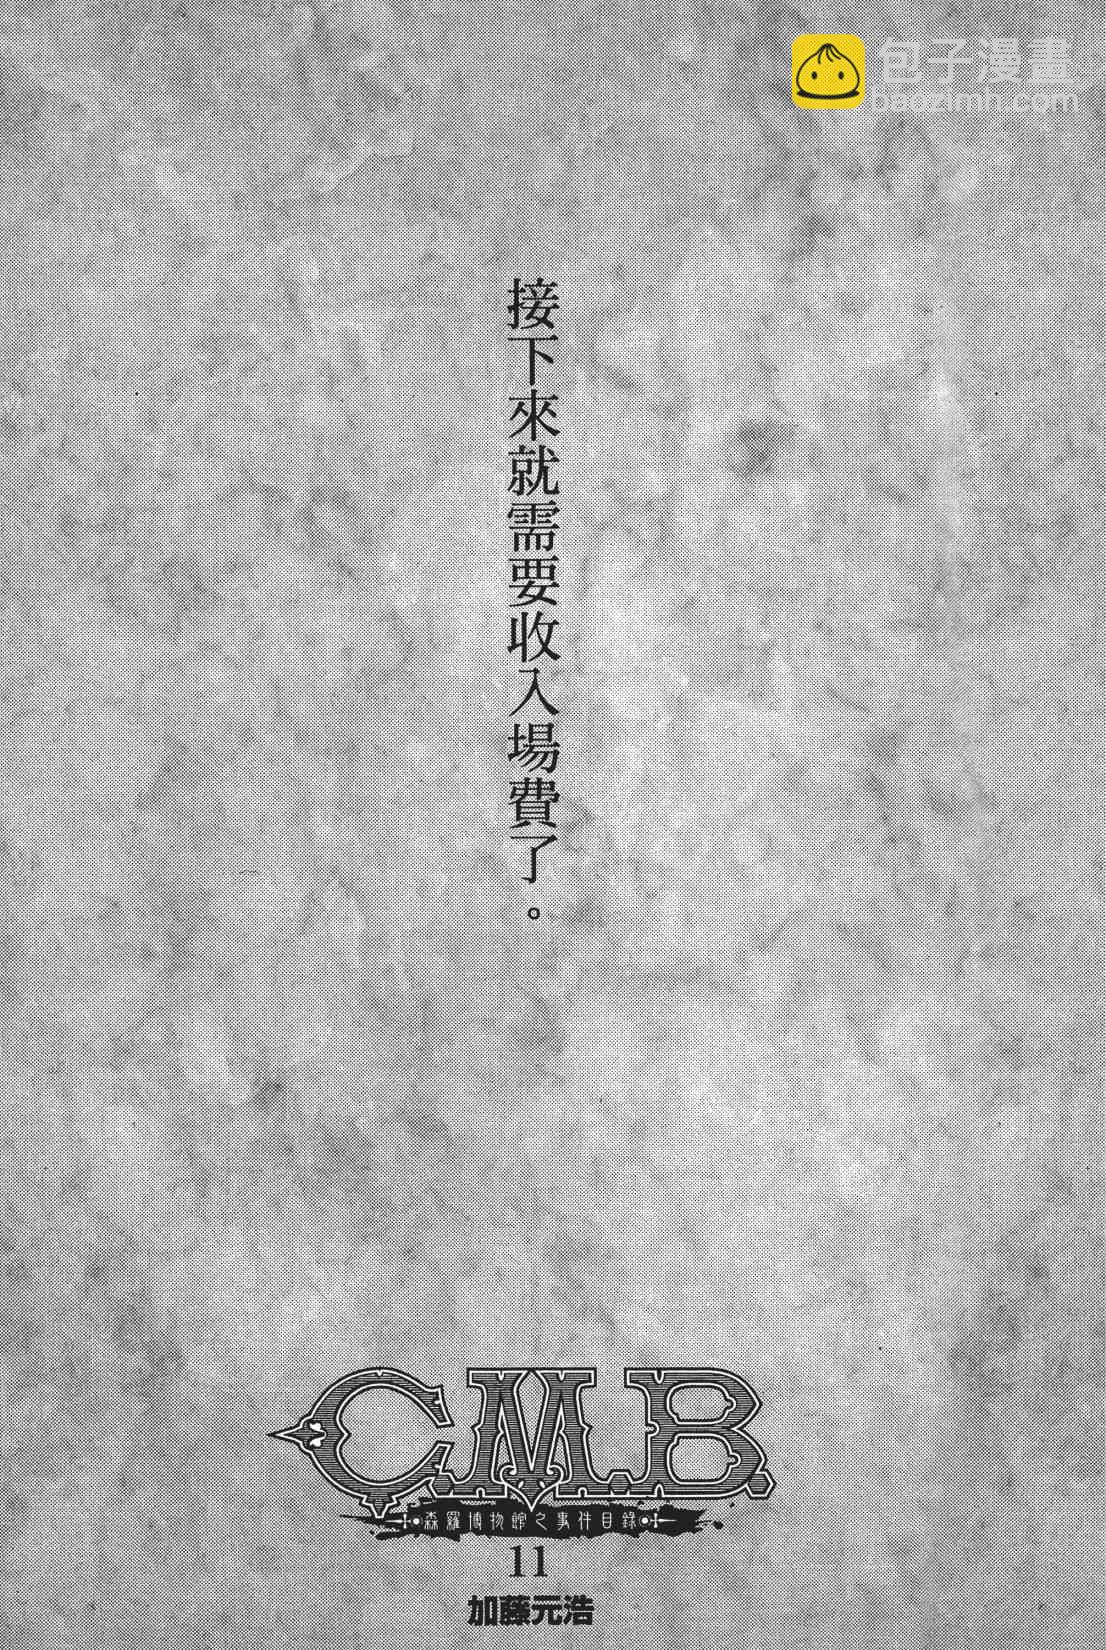 包子漫畫
baozimh.com
接下來就需要收入場費了。
C.M.B
森羅博物館之事件目錄
11
加藤元浩